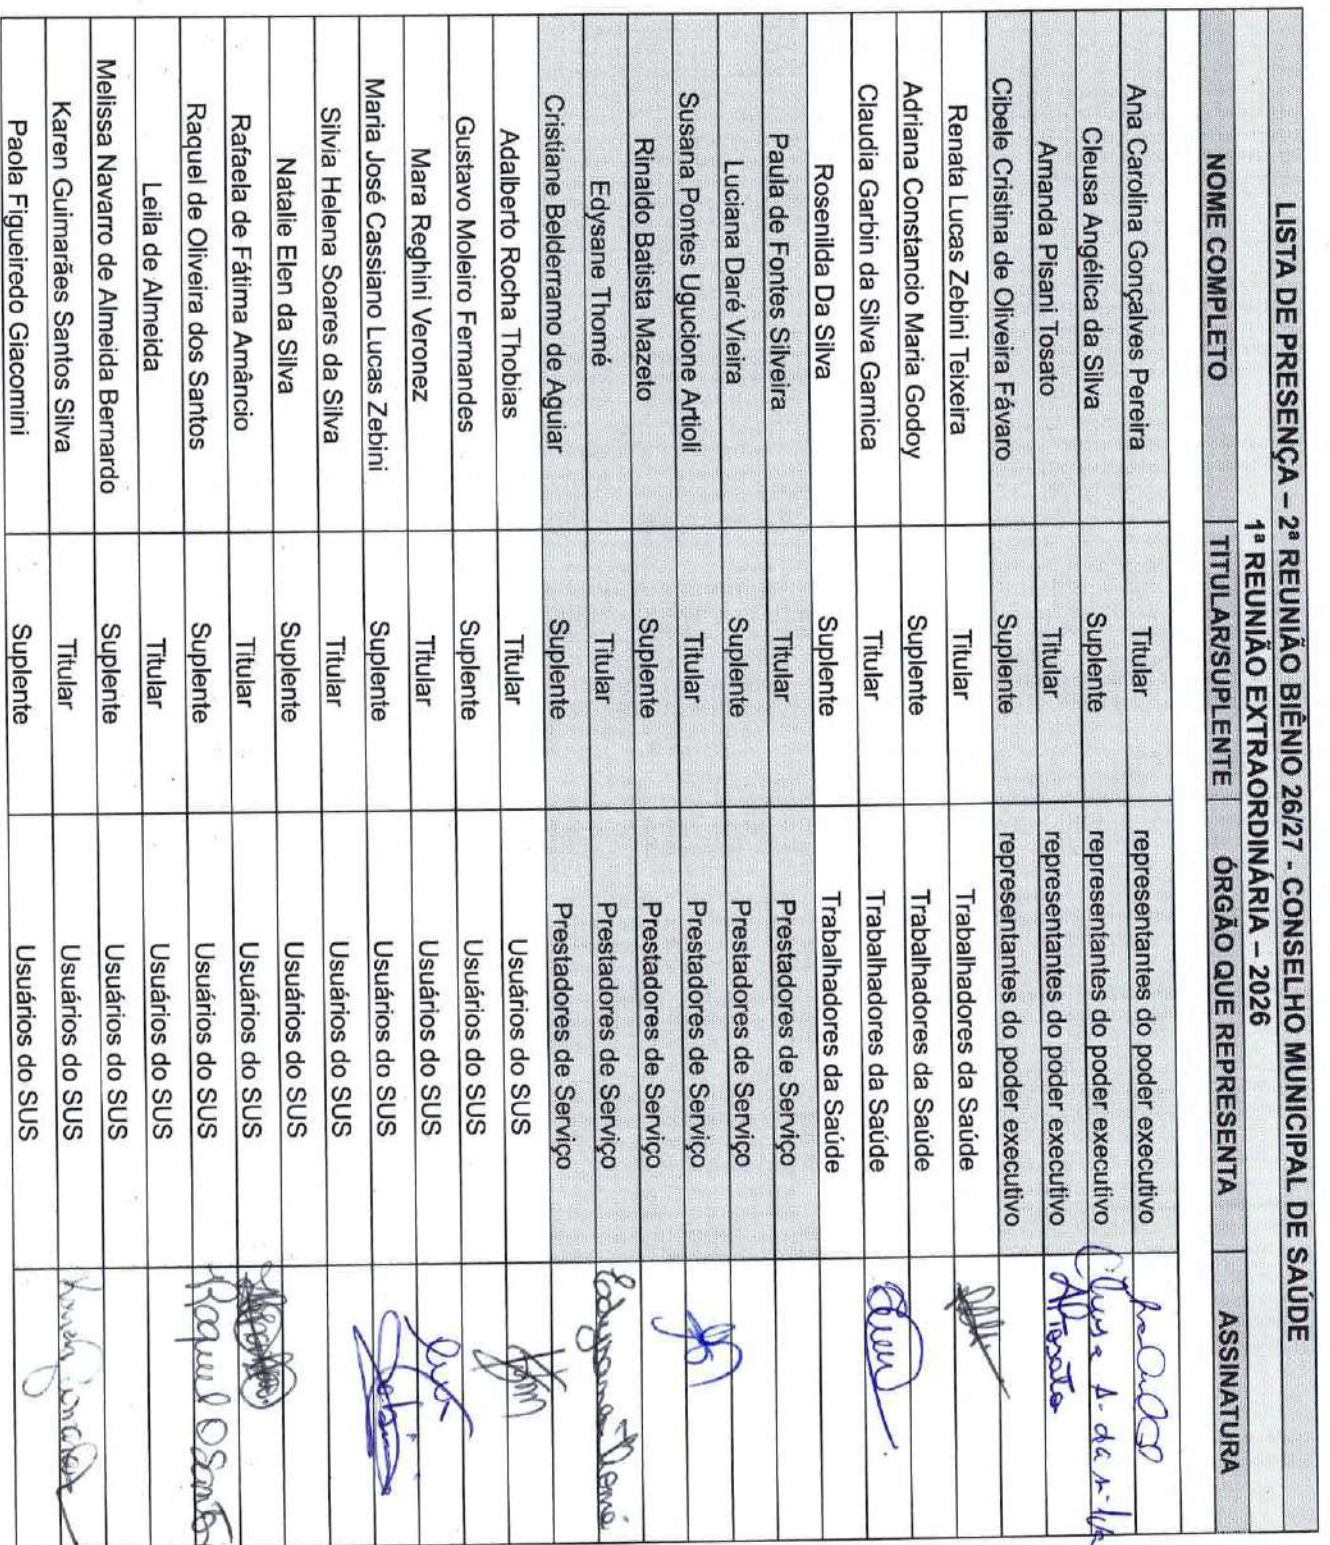 LISTA DE PRESENÇA – 2ª REUNIÃO BIÊNIO 26/27 - CONSELHO MUNICIPAL DE SAÚDE
1ª REUNIÃO EXTRAORDINÁRIA – 2026
NOME COMPLETO TITULAR/SUPLENTE ÓRGÃO QUE REPRESENTA ASSINATURA
Ana Carolina Gonçalves Pereira Titular representantes do poder executivo
Cleusa Angélica da Silva Suplente representantes do poder executivo Cleusa A. da Silva
Amanda Pisani Tosato Titular representantes do poder executivo APTosato
Cibele Cristina de Oliveira Fávaro Suplente representantes do poder executivo
Renata Lucas Zebini Teixeira Titular Trabalhadores da Saúde
Adriana Constancio Maria Godoy Suplente Trabalhadores da Saúde
Claudia Garbin da Silva Garnica Titular Trabalhadores da Saúde
Rosenilda Da Silva Suplente Trabalhadores da Saúde
Paula de Fontes Silveira Titular Prestadores de Serviço
Luciana Daré Vieira Suplente Prestadores de Serviço
Susana Pontes Ugucione Artioli Titular Prestadores de Serviço
Rinaldo Batista Mazeto Suplente Prestadores de Serviço
Edysane Thomé Titular Prestadores de Serviço Edysane Thomé
Cristiane Belderramo de Aguiar Suplente Prestadores de Serviço
Adalberto Rocha Thobias Titular Usuários do SUS
Gustavo Moleiro Fernandes Suplente Usuários do SUS
Mara Reghini Veronez Titular Usuários do SUS
Maria José Cassiano Lucas Zebini Suplente Usuários do SUS
Silvia Helena Soares da Silva Titular Usuários do SUS
Natalie Elen da Silva Suplente Usuários do SUS
Rafaela de Fátima Amâncio Titular Usuários do SUS
Raquel de Oliveira dos Santos Suplente Usuários do SUS Raquel O Santos
Leila de Almeida Titular Usuários do SUS
Melissa Navarro de Almeida Bernardo Suplente Usuários do SUS
Karen Guimarães Santos Silva Titular Usuários do SUS
Paola Figueiredo Giacomini Suplente Usuários do SUS